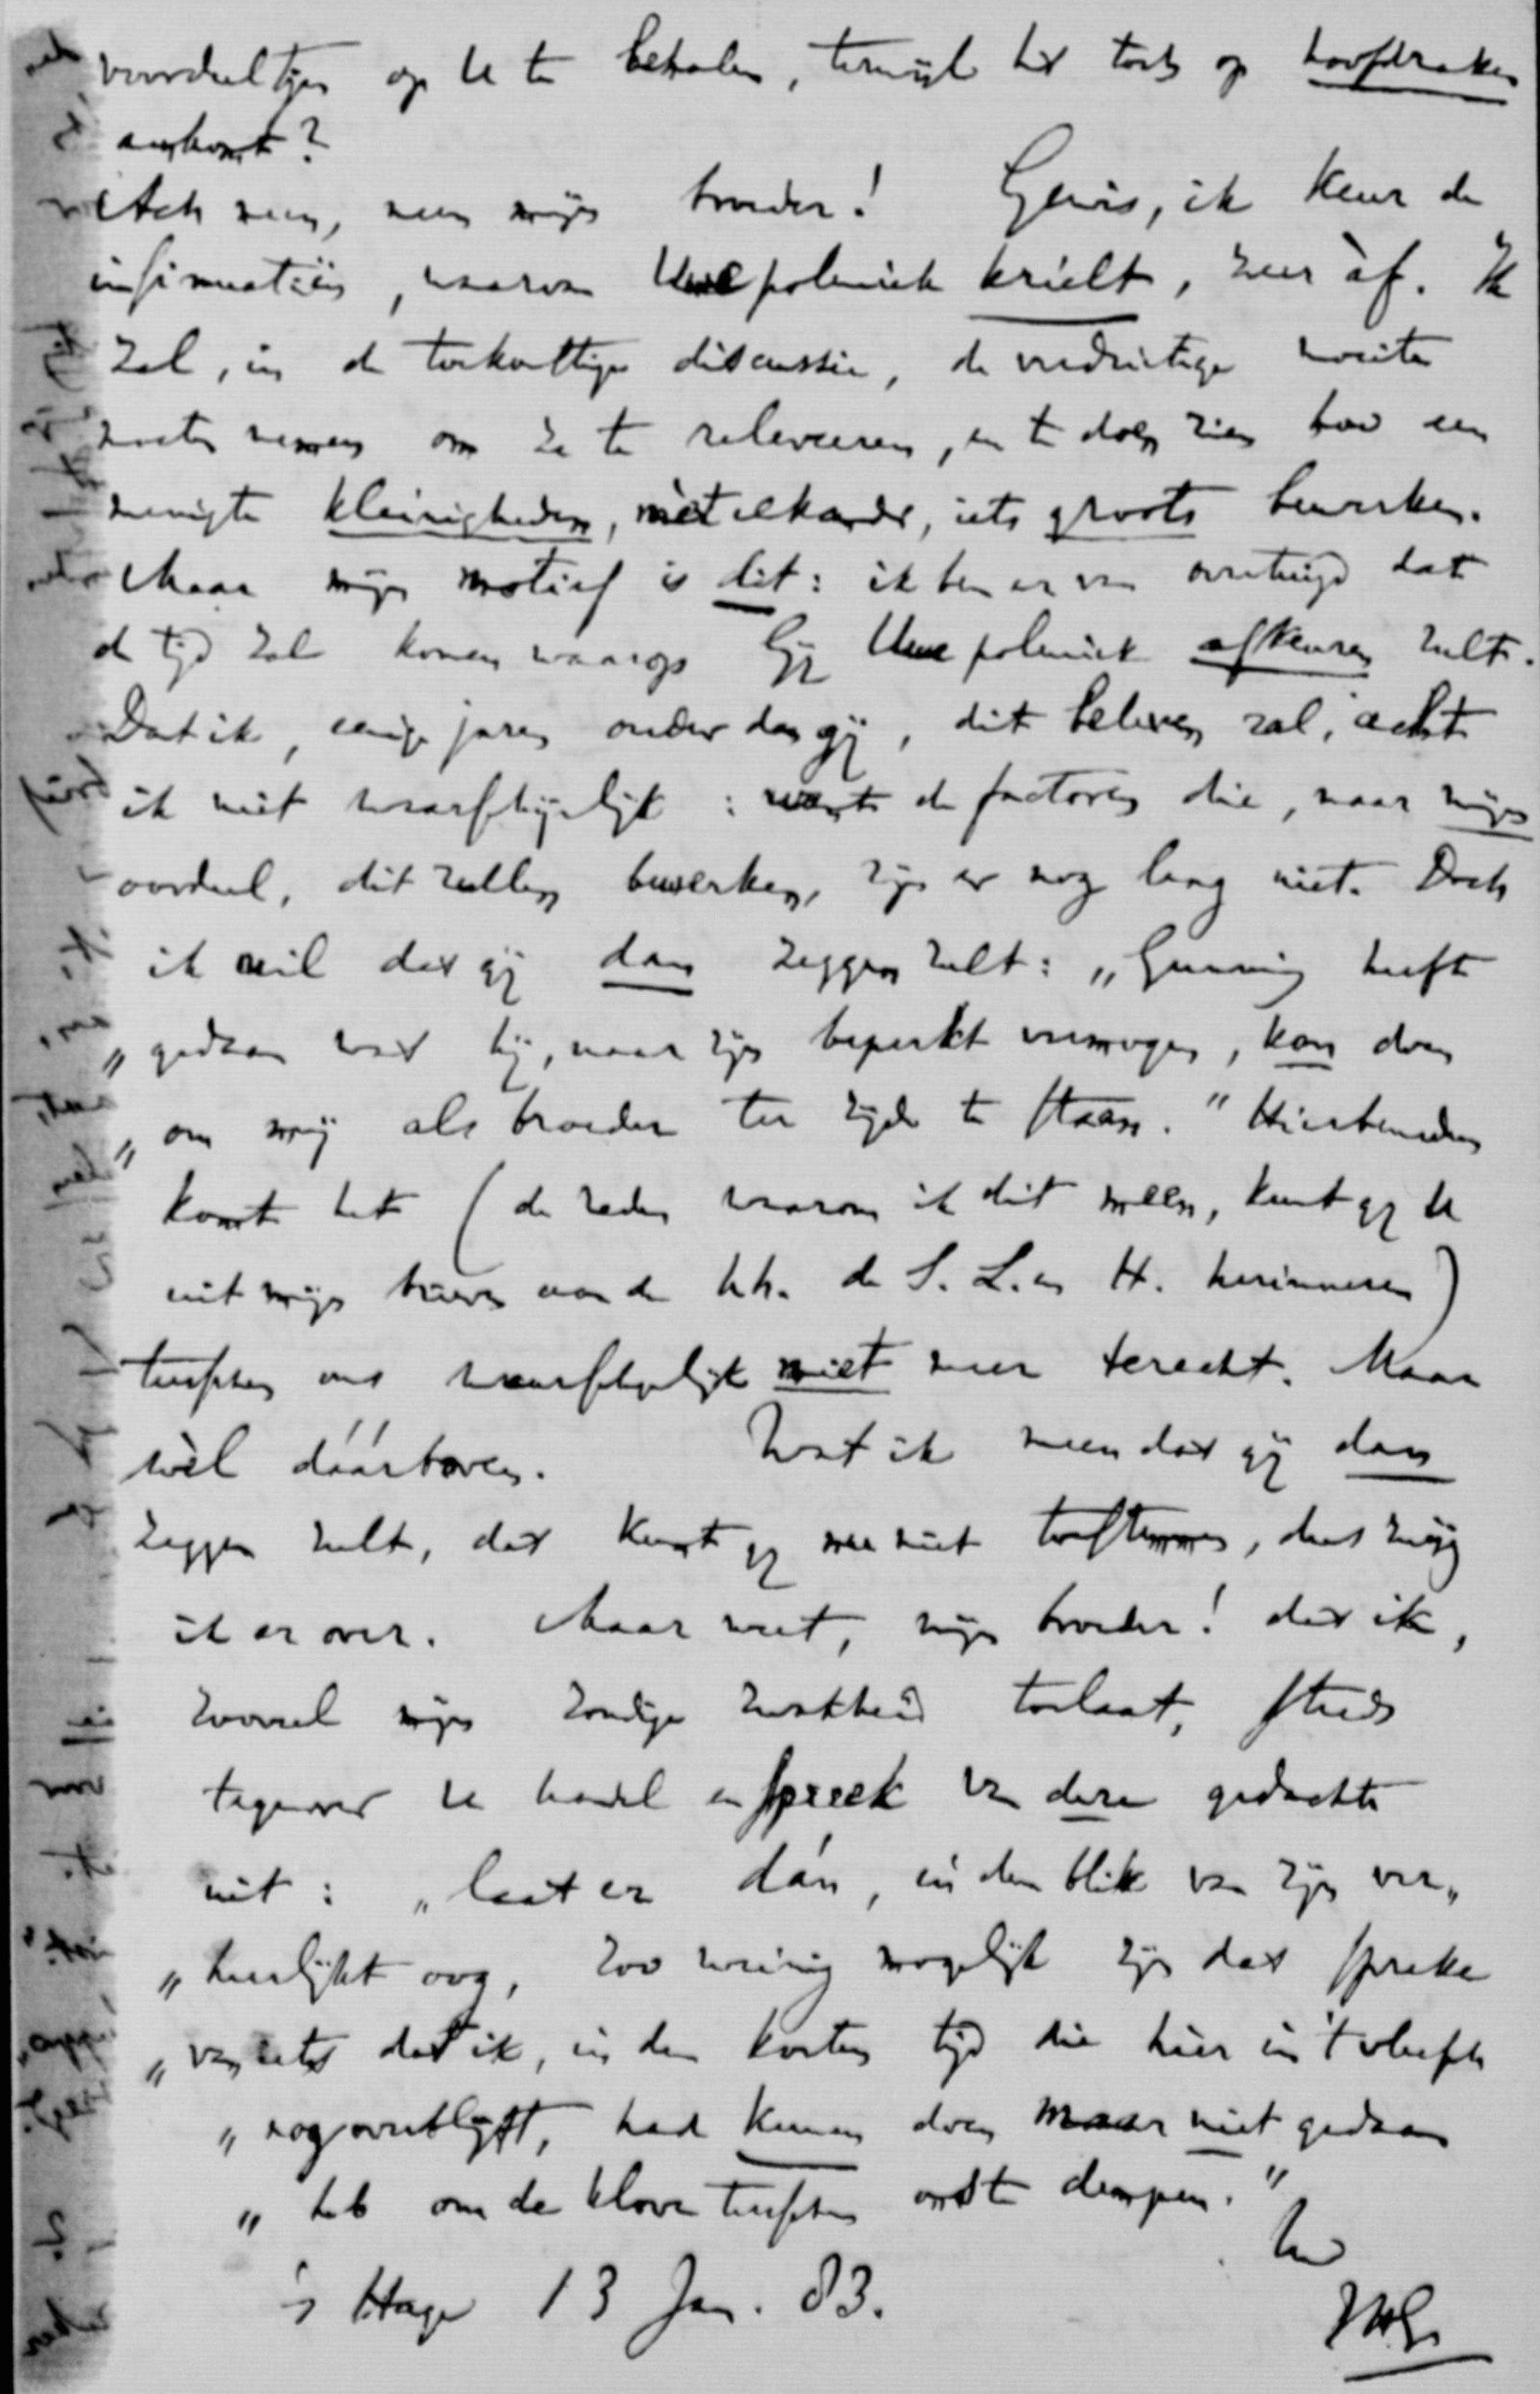 voordeeltjes op U te behalen, terwijl het toch op hoofdzaken
aankomt?
Ach neen, neen mijn broeder! Gewis, ik keur de
insinuatiën, waarvan Uwe polemiek krielt, zeer àf. Ik
zal, in de toekomstige discussie, de verdrietige moeite
moeten nemen om ze te releveeren, en te doen zien hoe een
menigte kleinigheden, mèt elkander, iets groots bewerken.
Maar mijn motief is dit: ik ben er van overtuigd dat
de tijd zal komen waarop Gij Uwe polemiek afkeuren zult.
Dat ik, eenige jaren ouder dan gij, dit beleven zal, acht
ik niet waarschijnlijk: want de factoren die, naar mijn
oordeel, dit zullen bewerken, zijn er nog lang niet. Doch
ik wil dat gij dan zeggen zult: „Gunning heeft
„gedaan wat hij, naar zijn beperkt vermogen, kon doen
„om mij als broeder ter zijde te staan." Hierbeneden
komt het (de reden waarom ik dit meen, kunt gij U
uit mijn brieven aan de hh. de S. L. en H. herinneren)
tusschen ons waarschijnlijk niet meer terecht. Maar
wèl dáárboven. Wat ik meen dat gij dan
zeggen zult, dat kunt gij nu niet toestemmen, dus zwijg
ik er over. Maar weet, mijn broeder! dat ik,
zooveel mijn zondige zwakheid toelaat, steeds
tegenover U handel en spreek van deze gedachte
uit: „laat er dán, in den blik van zijn ver„
„heerlijkt oog, zoo weinig mogelijk zijn dat spreke
„van iets dat ik, in den korten tijd die hier in 't vleesch
„nog overblijft, had kunnen doen maar niet gedaan
„heb om de klove tusschen ons te dempen."
Uw
's Hage 13 Jan. 83.
JHG.